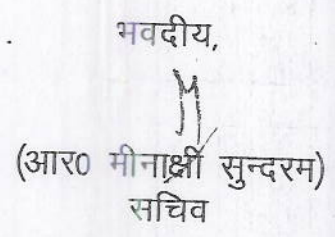 भवदीय,
(आर0 मीनाक्षी सुन्दरम)
सचिव